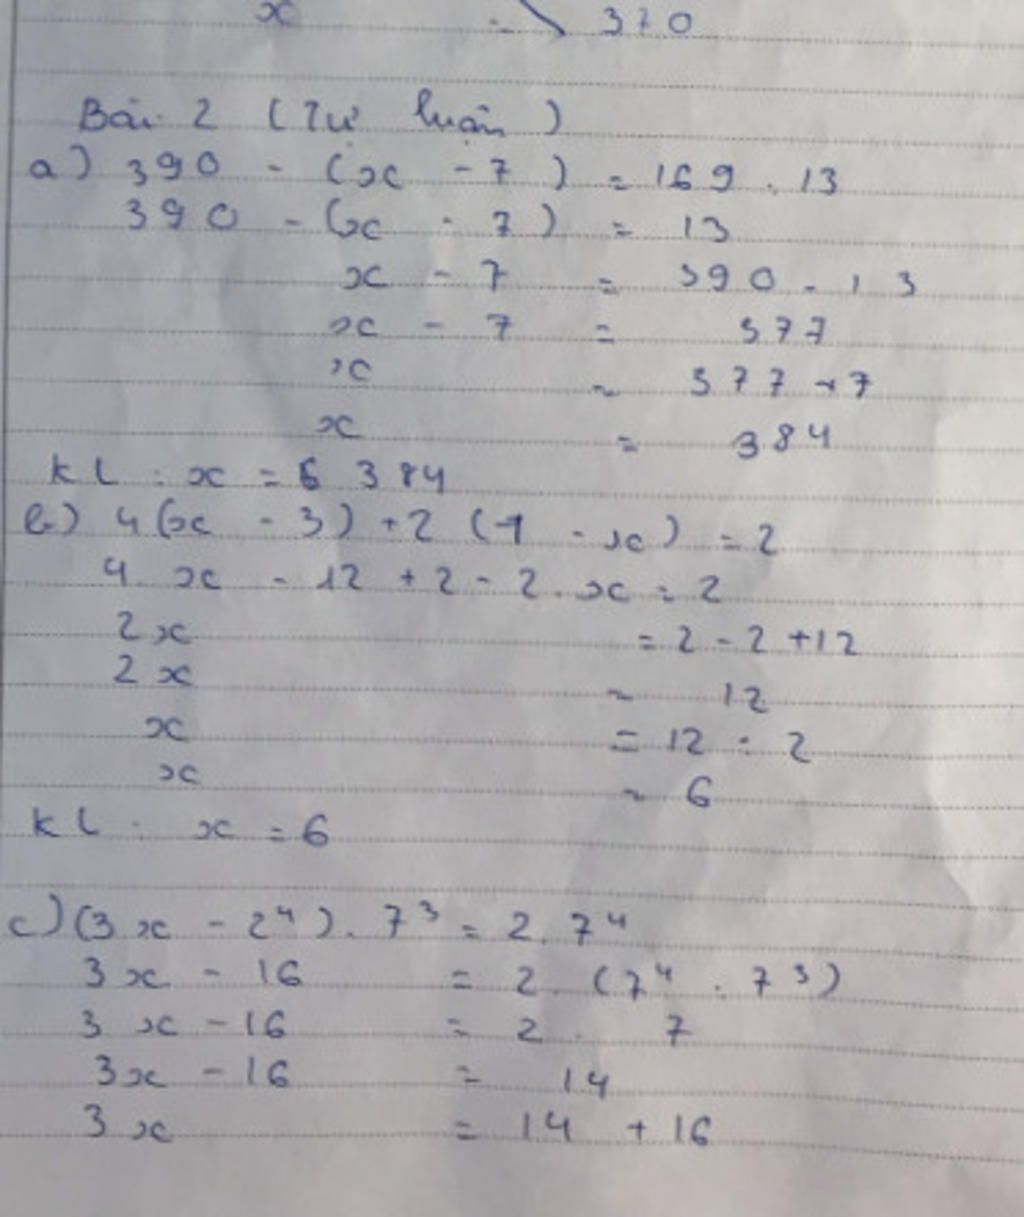 x = 370
Bài 2 (Tự luận)
a) 390 - (x - 7) = 169 : 13
390 - (x - 7) = 13
x - 7 = 390 - 13
x - 7 = 377
x = 377 + 7
x = 384
KL : x = 6 384
b) 4(x - 3) + 2 (1 - x) = 2
4 . x - 12 + 2 - 2 . x = 2
2x = 2 - 2 + 12
2x = 12
x = 12 : 2
x = 6
KL : x = 6
c) (3x - 2⁴) . 7³ = 2 . 7⁴
3x - 16 = 2 . (7⁴ : 7³)
3x - 16 = 2 . 7
3x - 16 = 14
3x = 14 + 16